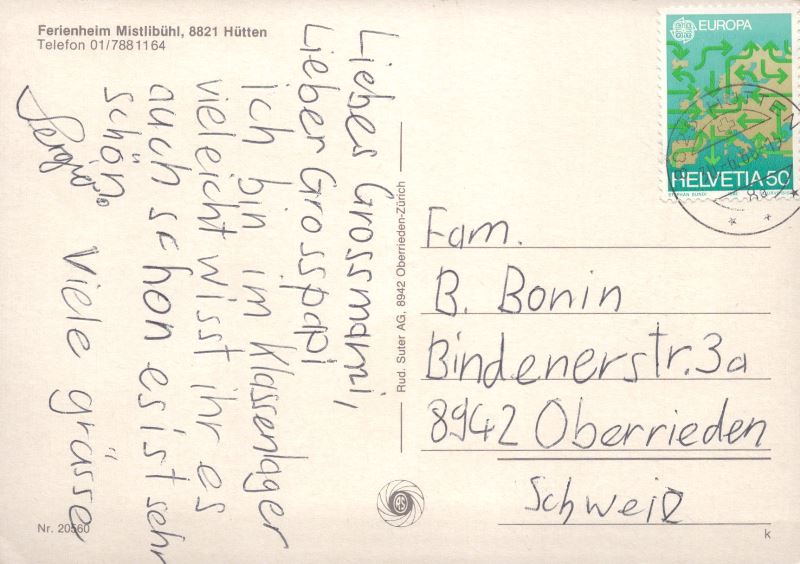 Ferienheim Mistlibühl, 8821 Hütten
Telefon 01/7881164
Liebes Grossmami,
Lieber Grosspapi
Ich bin im Klassenlager
vieleicht wisst ihr es
auch schon es ist sehr
schön.
Viele grässe
Sergio
Rud. Suter AG, 8942 Oberrieden-Zürich
EUROPA
HELVETIA 50
Fam.
B. Bonin
Bindenerstr. 3a
8942 Oberrieden
Schweiz
Nr. 20560
k